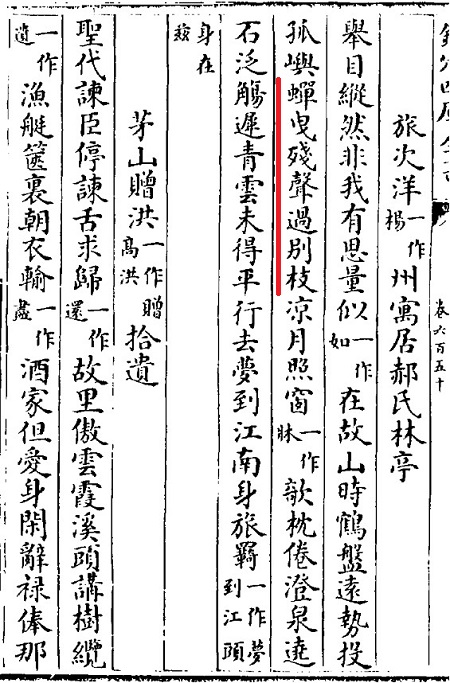 卷六百五十
旅次洋一作楊州寓居郝氏林亭
舉目縱然非我有思量似一作如在故山時鶴盤遠勢投
孤嶼蟬曳殘聲過別枝凉月照窗一作牀欹枕倦澄泉遶
石泛觴遲青雲未得平行去夢到江南身旅羈一作夢到江頭
身在茲
茅山贈洪一作贈高洪拾遺
聖代諫臣停諫舌求歸一作還故里傲雲霞溪頭講樹纜
一作遺漁艇篋裏朝衣輸一作盡酒家但愛身閑辭祿俸那